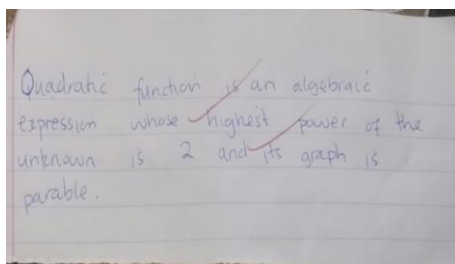 Quadratic function is an algebraic
expression whose highest power of the
unknown is 2 and its graph is
parable.